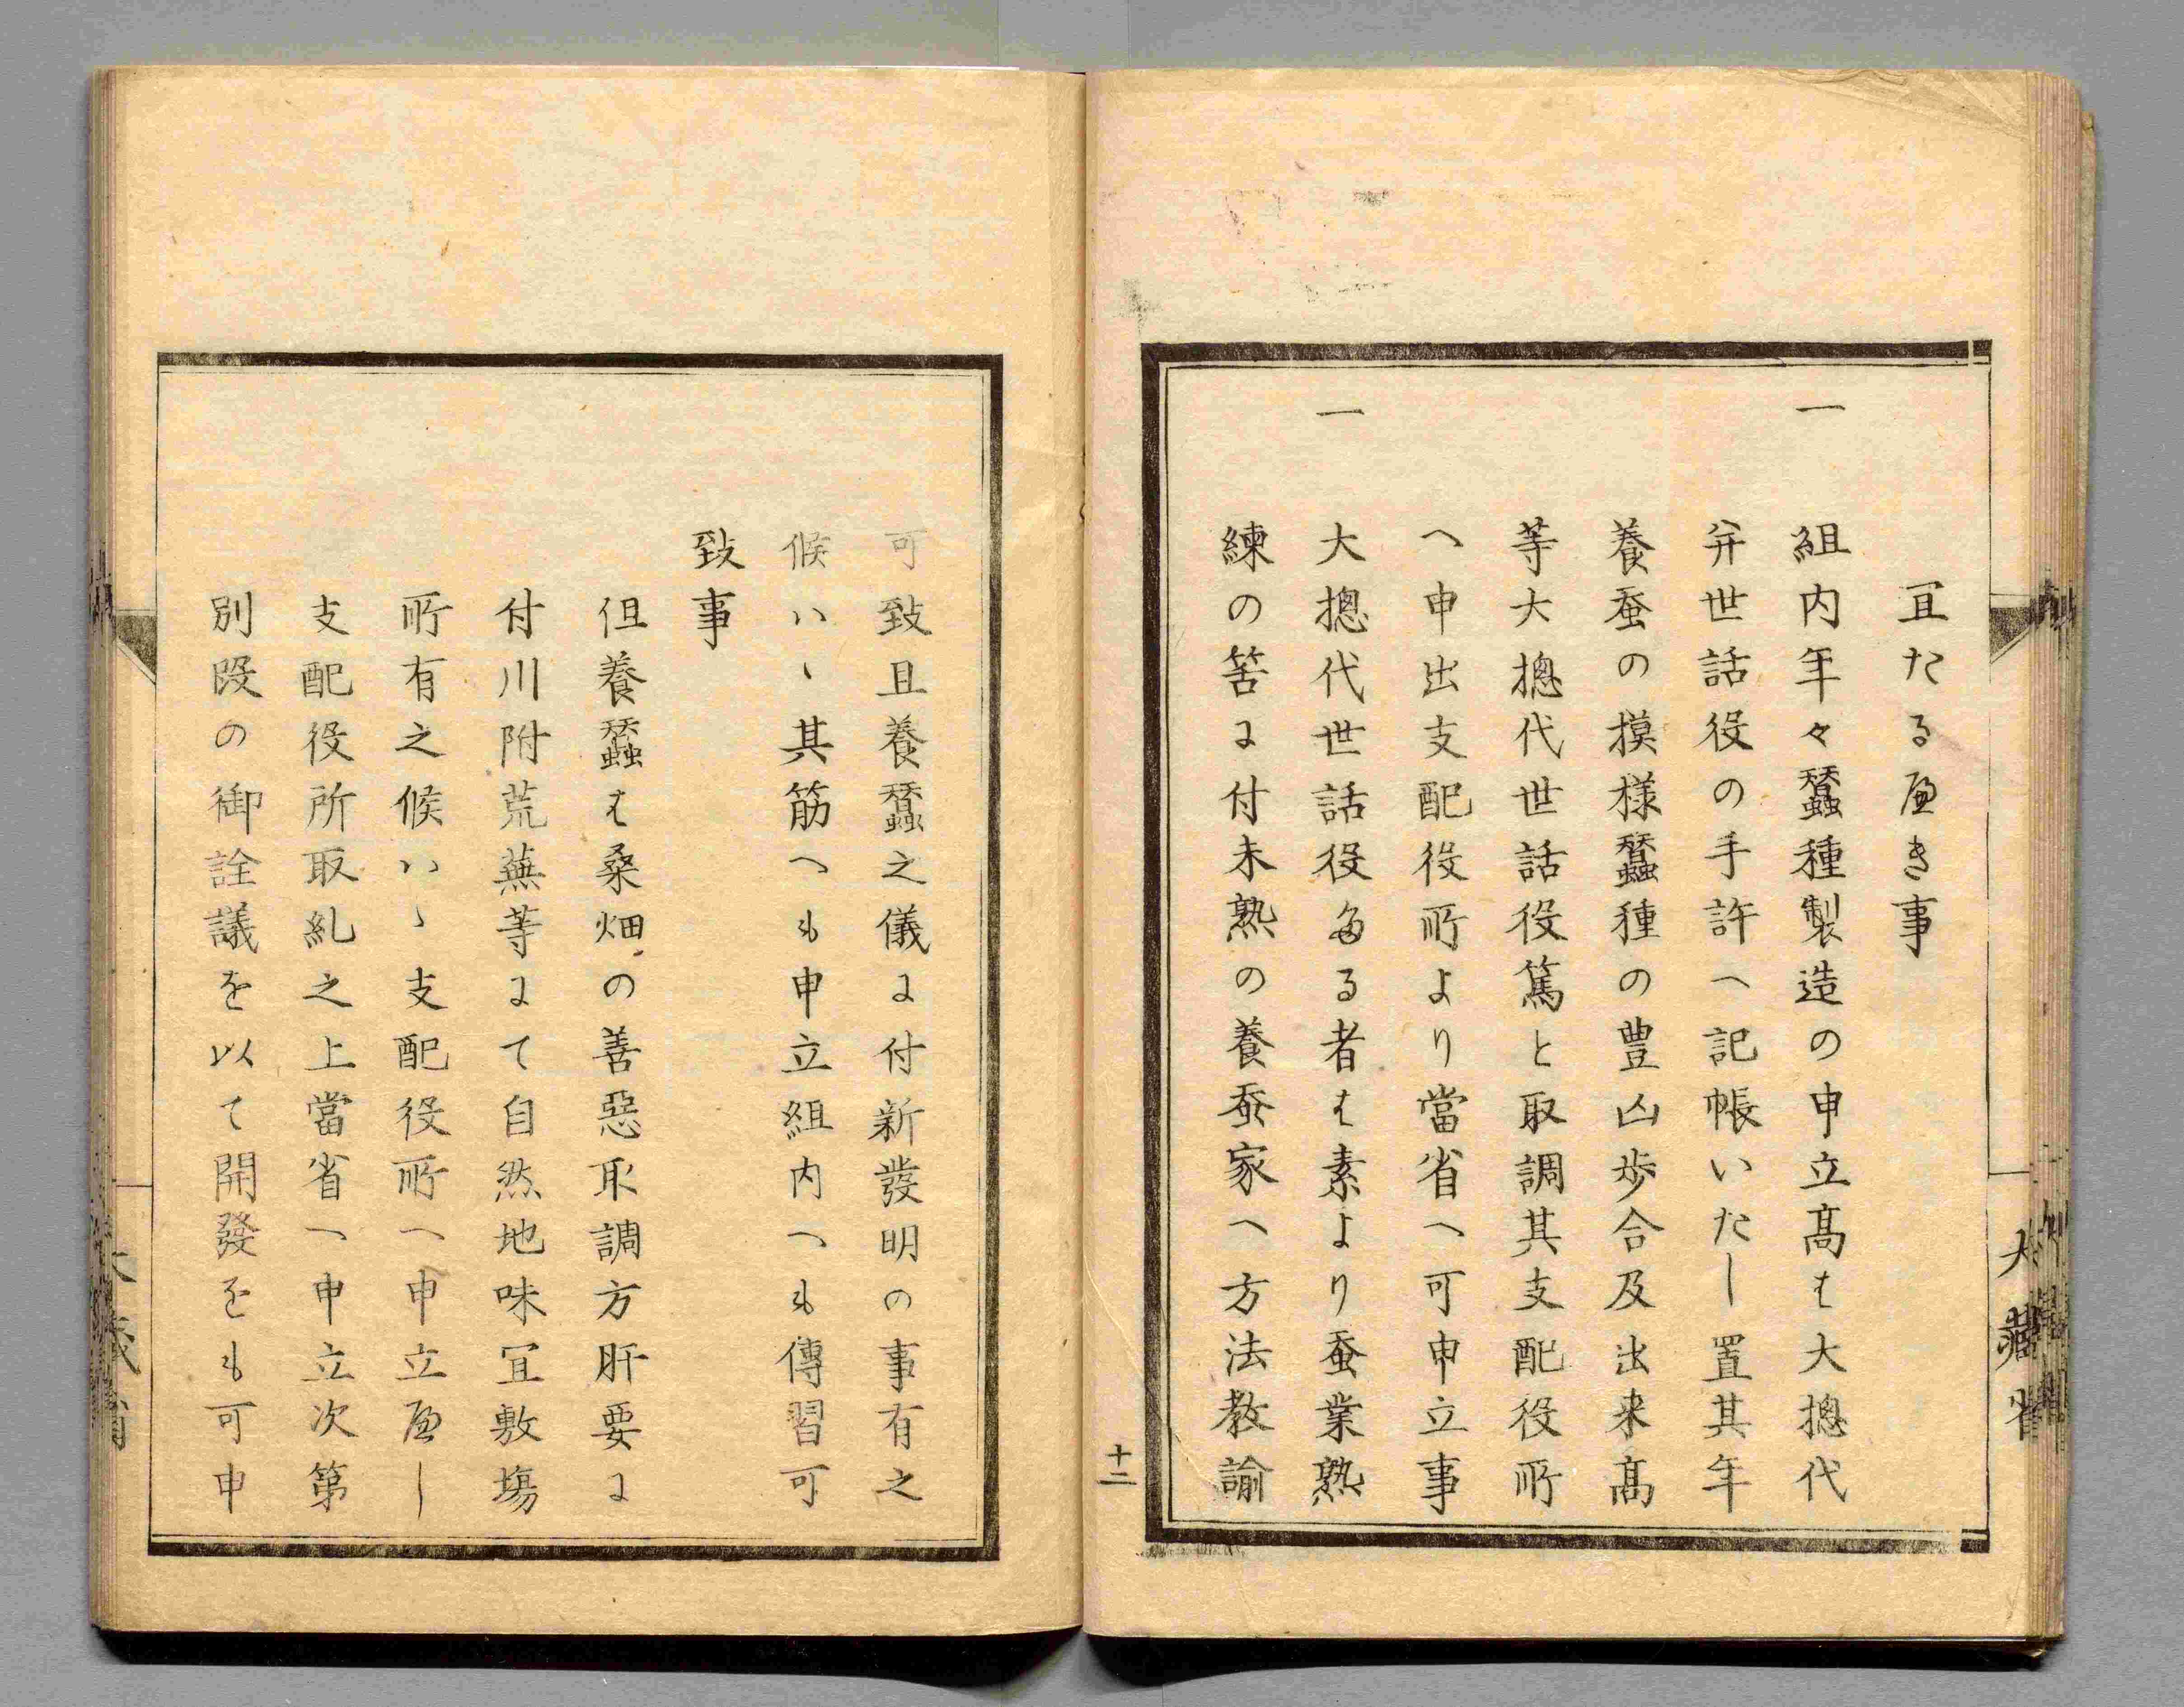 冝たるべき事
一 組内年々蠶種製造の申立髙は大摠代
弁世話役の手許へ記帳いたし置其年
養蚕の摸様蠶種の豊凶歩合及出来髙
等大摠代世話役篤と取調其支配役所
へ申出支配役所より當省へ可申立事
一 大摠代世話役たる者は素より蚕業熟
練の筈に付未熟の養蚕家へ方法教諭
十二
大藏省
可致且養蠶之儀に付新發明の事有之
候ハヽ其筋へも申立組内へも傳習可
致事
但養蠶は桑畑の善惡取調方肝要に
付川附荒蕪等にて自然地味冝敷塲
所有之候ハヽ支配役所へ申立べし
支配役所取糺之上當省へ申立次第
別段の御詮議を以て開發をも可申